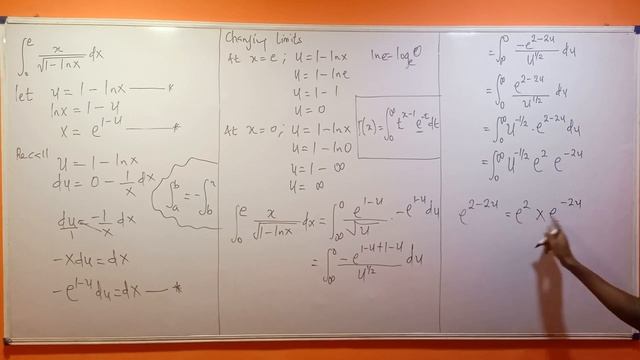 ∫₀ᵉ x/√(1-lnx) dx
let u = 1 - lnx —— *
lnx = 1 - u
x = e^(1-u) —— *
Recall
u = 1 - lnx
du = 0 - 1/x dx
du/1 = -1/x dx
-xdu = dx
-e^(1-u) du = dx —— *
∫ₐᵇ = -∫_bᵃ
Changing Limits
At x = e; u = 1 - lnx
u = 1 - lne
u = 1 - 1
u = 0
At x = 0; u = 1 - lnx
u = 1 - ln0
u = 1 - ∞
u = ∞
lne = logₑe
Γ(x) = ∫₀^∞ t^(x-1) e^(-t) dt
∫₀ᵉ x/√(1-lnx) dx = ∫_∞⁰ e^(1-u)/√u · -e^(1-u) du
= ∫_∞⁰ -e^(1-u+1-u)/u^(1/2) du
= ∫_∞⁰ -e^(2-2u)/u^(1/2) du
= ∫₀^∞ e^(2-2u)/u^(1/2) du
= ∫₀^∞ u^(-1/2) · e^(2-2u) du
= ∫₀^∞ u^(-1/2) e² e^(-2u)
e^(2-2u) = e² × e^(-2u)